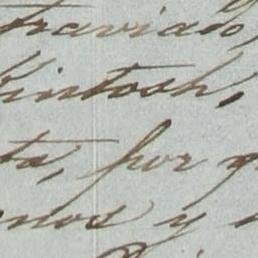 traviado
Kintosh,
ta, por q
nos y